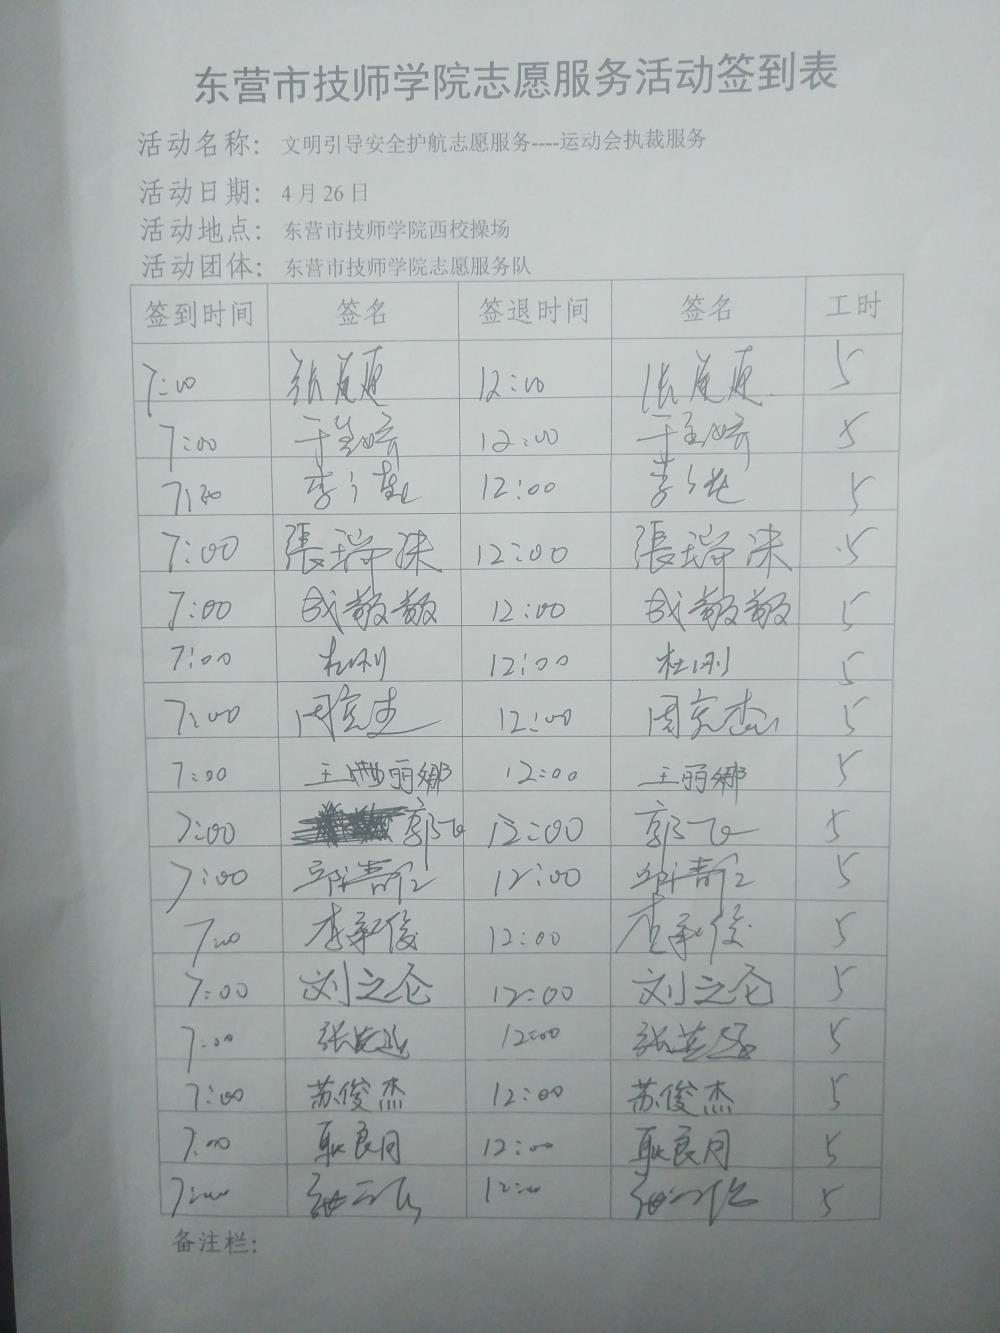 东营市技师学院志愿服务活动签到表
活动名称： 文明引导安全护航志愿服务----运动会执裁服务
活动日期： 4月26日
活动地点： 东营市技师学院西校操场
活动团体： 东营市技师学院志愿服务队
签到时间 签名 签退时间 签名 工时
7:00 12:00 5
7:00 12:00 5
7:00 李 12:00 李 5
7:00 張瑞 12:00 張瑞 5
7:00 成敬敬 12:00 成敬敬 5
7:00 杜刚 12:00 杜刚 5
7:00 周 12:00 周 5
7:00 王 丽娜 12:00 王丽娜 5
7:00 郭飞 12:00 郭飞 5
7:00 邱 12:00 邱 5
7:00 李承俊 12:00 李承俊 5
7:00 刘之仑 12:00 刘之仑 5
7:00 张 12:00 张 5
7:00 苏俊杰 12:00 苏俊杰 5
7:00 耿良同 12:00 耿良同 5
7:00 12:00 5
备注栏：